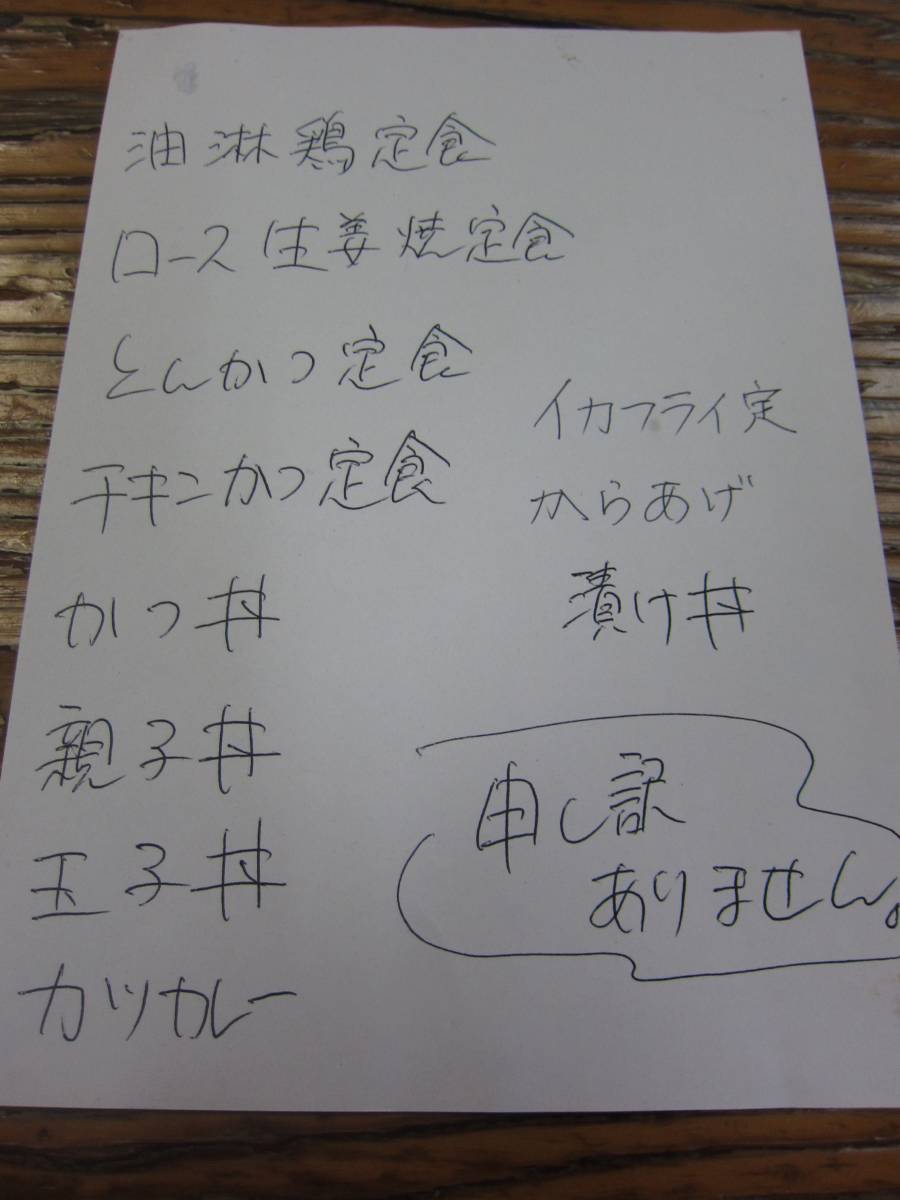 油淋鶏定食
ロース生姜焼定食
とんかつ定食
チキンかつ定食
かつ丼
親子丼
玉子丼
カツカレー
イカフライ定
からあげ
漬け丼
申し訳
ありません。